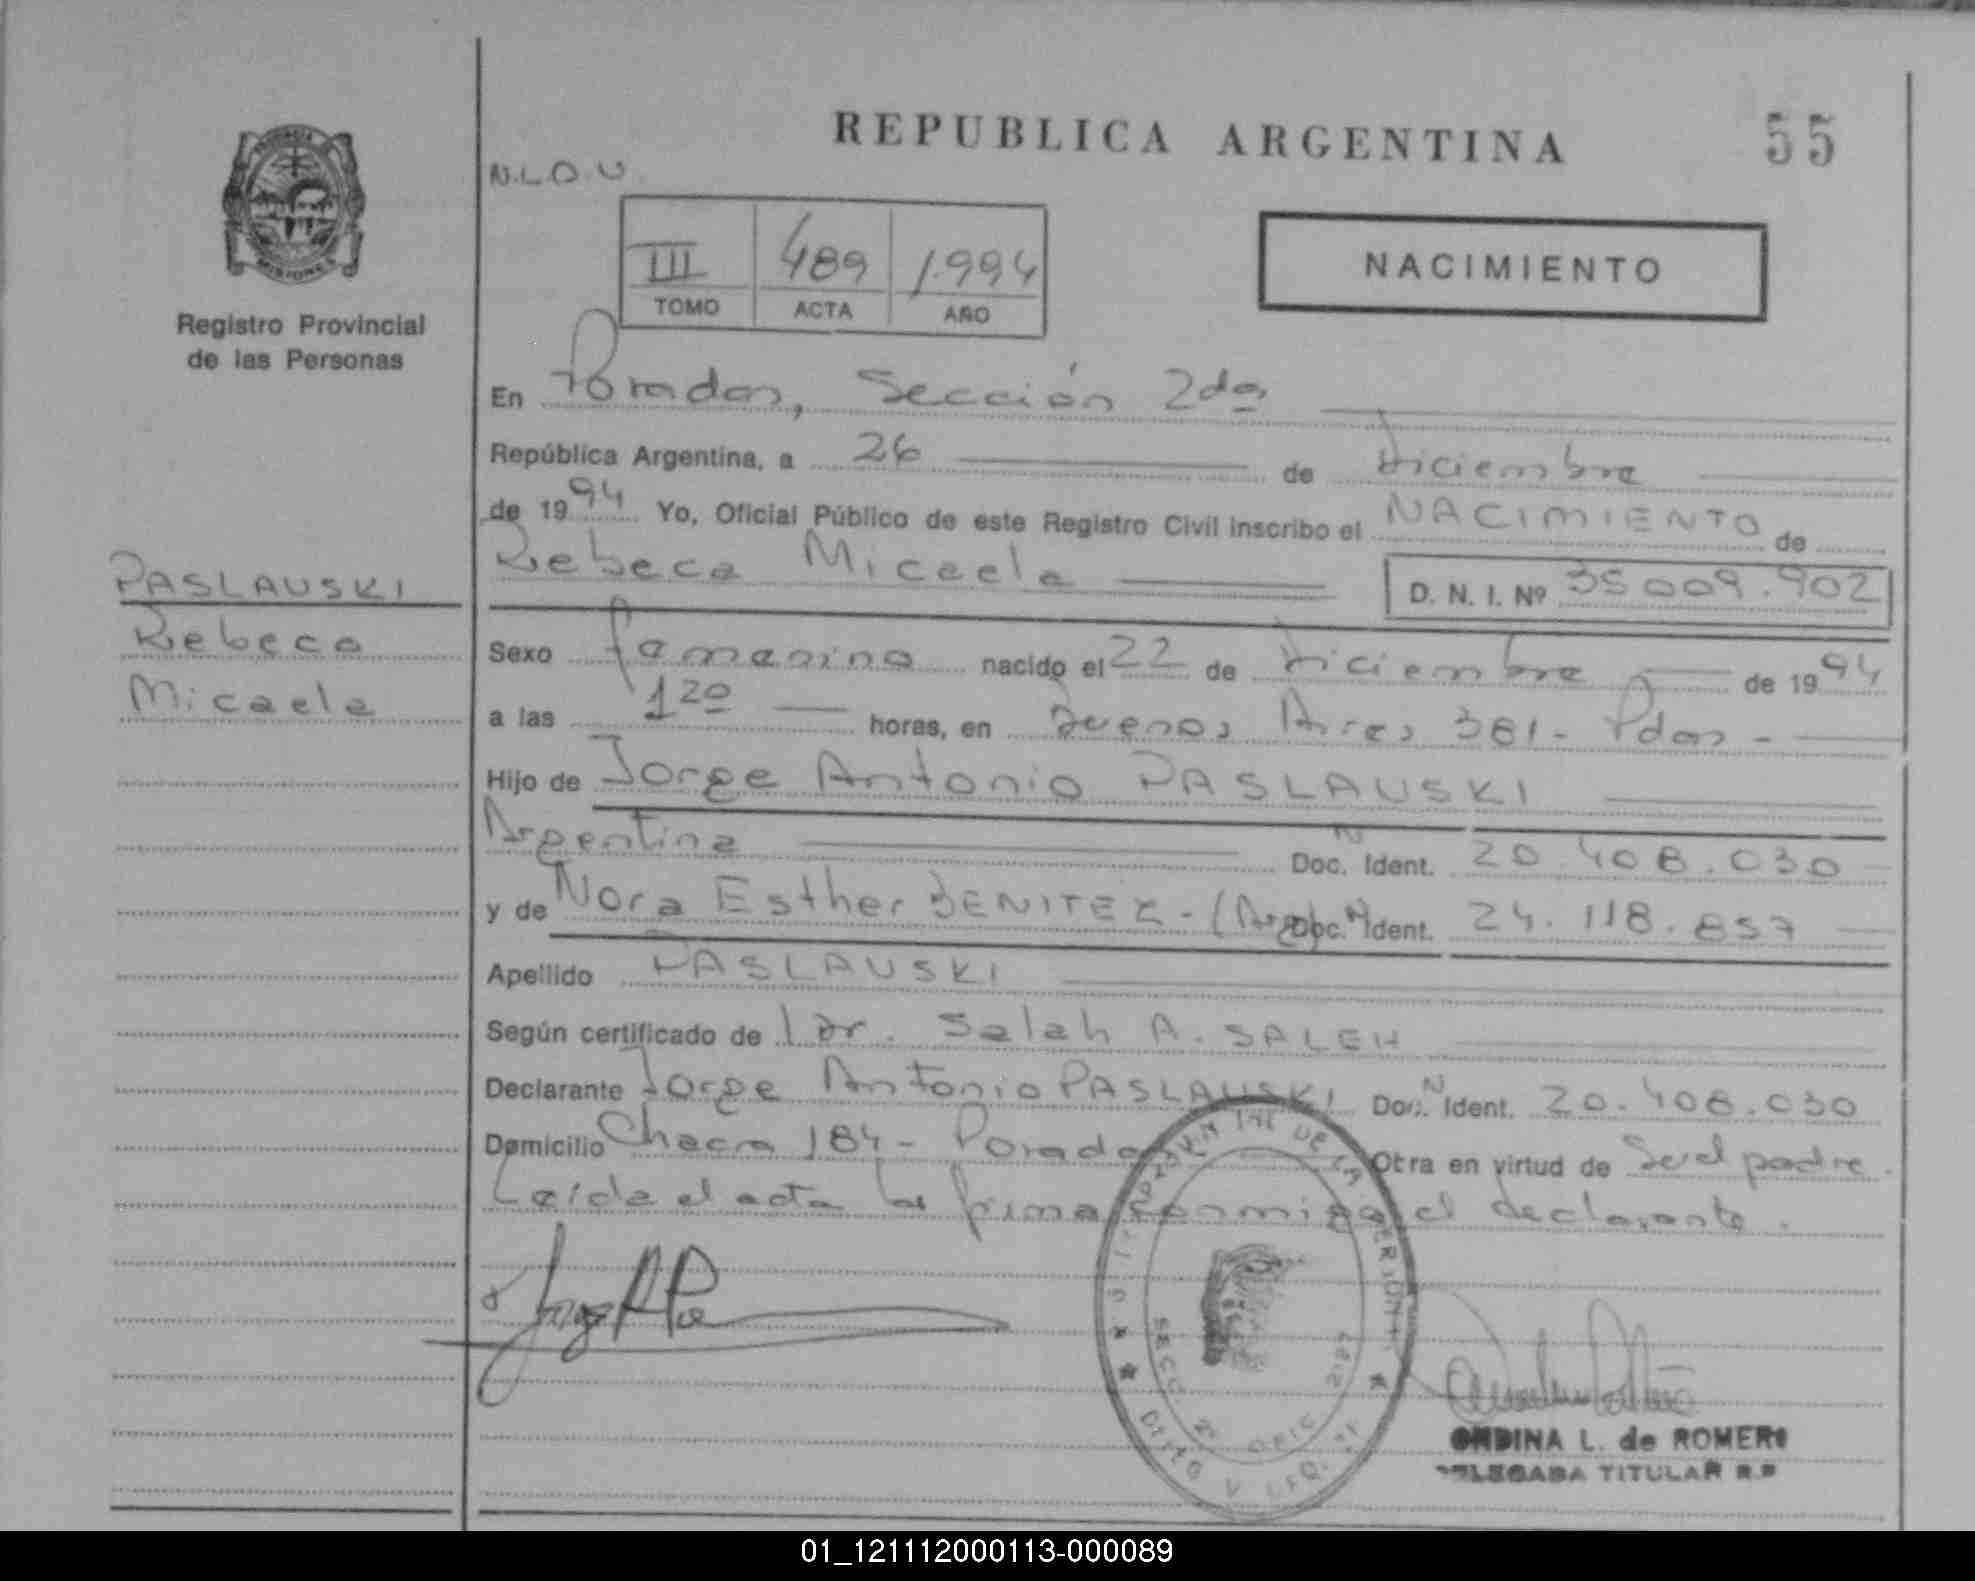 REPUBLICA ARGENTINA
55
N.L.O.U.
III 489 1.994
TOMO ACTA AÑO
NACIMIENTO
MISIONES
Registro Provincial
de las Personas
En Posadas, Sección 2da
República Argentina, a 26 de diciembre
de 1994 Yo, Oficial Público de este Registro Civil inscribo el NACIMIENTO de
Rebeca Micaela D. N. I. Nº 35009.902
PASLAUSKI
Rebeca
Micaela
Sexo femenino nacido el 22 de diciembre de 1994
a las 1 20 horas, en Buenos Aires 381- Pdas -
Hijo de Jorge Antonio PASLAUSKI
Argentina Doc. N Ident. 20.408.030
y de Nora Esther BENITEZ - (Arg) Doc. N Ident. 24.118.857
Apellido PASLAUSKI
Según certificado de Dr. Salah A. SALEH
Declarante Jorge Antonio PASLAUSKI Doc. N Ident. 20.408.030
Domicilio Chacra 184- Posadas Otra en virtud de Ser el padre.
Leída el acta la firma conmigo el declarante.
DE LAS PERSONAS
SECC. 2ª
ONDINA L. de ROMERO
DELEGADA TITULAR R.P
01_121112000113-000089